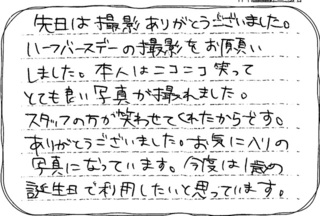 先日は撮影ありがとうございました。
ハーフバースデーの撮影をお願い
しました。本人はニコニコ笑って
とても良い写真が撮れました。
スタッフの方が笑わせてくれたからです。
ありがとうございました。お気に入りの
写真になっています。今度は1歳の
誕生日で利用したいと思っています。